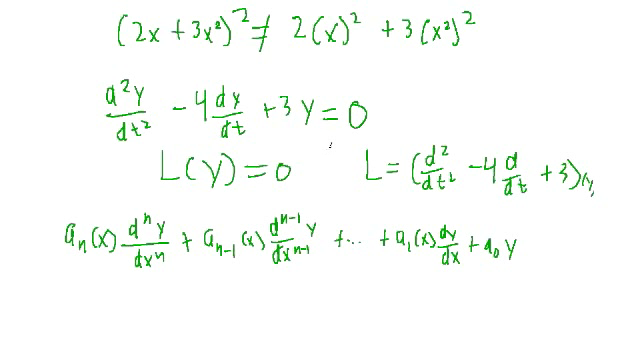 (2x + 3x²)² ≠ 2(x)² + 3(x²)²
d²y/dt² - 4 dy/dt + 3y = 0
L(y) = 0 L = (d²/dt² - 4 d/dt + 3)(y)
aₙ(x) dⁿy/dxⁿ + aₙ₋₁(x) dⁿ⁻¹y/dxⁿ⁻¹ + ... + a₁(x) dy/dx + a₀ y